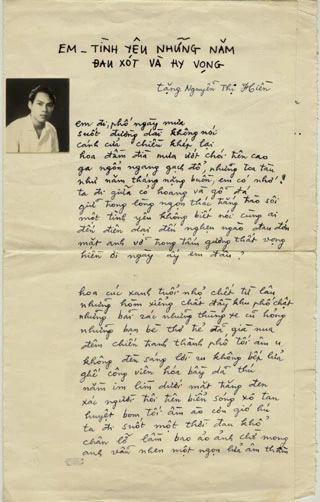 EM - TÌNH YÊU NHỮNG NĂM
ĐAU XÓT VÀ HY VỌNG
Tặng Nguyễn Thị Hiền
em đi, phố ngày mưa
suốt đường dài không nói
cánh cửa chiều khép lại
hoa đầm đìa mưa ướt chói trên cao
ga ngổn ngang gạch đổ, những toa tàu
như năm tháng nặng buồn, em có nhớ?
ta đi giữa cỏ hoang và gỗ đá
giữ trong lòng ngọn thác trắng gào sôi
một tình yêu không biết nói cùng ai
đến điên dại đến nghẹn ngào đau đớn
mắt anh vỡ trong tấm gương thất vọng
hiên đi ngày ấy em đâu?
hoa cúc xanh tuổi nhỏ chết từ lâu
những hòm xiểng chất đầy khu phố chật
những bãi xác những thùng xe cũ hỏng
những bạn bè thơ trẻ đã già nua
đêm chiến tranh thành phố tối âm u
không đèn sáng lối ra không bếp lửa
ghế công viên hóa bầy đá thú
nằm im lìm dưới mặt trăng đen
xác người trôi trên biển sóng xô tan
huyệt bom, tối ầm ào cơn gió hú
ta đi suốt một thời đau khổ
chân lê lấm bao ảo ảnh chờ mong
anh vẫn nhen một ngọn lửa âm thầm